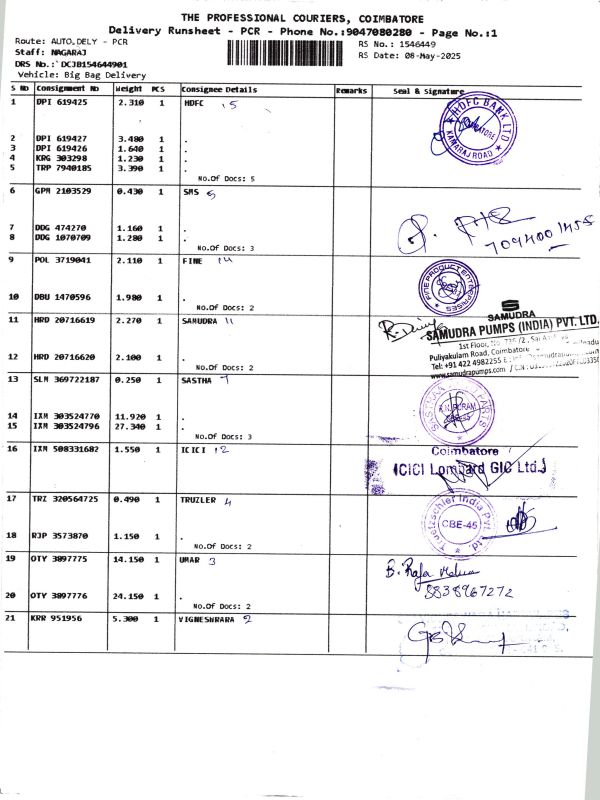 THE PROFESSIONAL COURIERS, COIMBATORE
Delivery Runsheet - PCR - Phone No.:9047080280 - Page No.:1
Route: AUTO,DELY - PCR
RS No.: 1546449
Staff: NAGARAJ
RS Date: 08-May-2025
DRS No.: DCJB154644901
Vehicle: Big Bag Delivery
S No Consignment No Weight PCS Consignee Details Remarks Seal & Signature
1 DPI 619425 2.310 1 HDFC 15
HDFC BANK LTD
KAMARAJ ROAD
2 DPI 619427 3.480 1 .
3 DPI 619426 1.640 1 .
4 KRG 303298 1.230 1 .
5 TRP 7940185 3.390 1 .
No.Of Docs: 5
6 GPM 2103529 0.430 1 SMS 6
7 DDG 474270 1.160 1 .
8 DDG 1070709 1.280 1 .
No.Of Docs: 3
9 POL 3719041 2.110 1 FINE 14
FINE PRODUCT ENTERPRISES
10 DBU 1470596 1.980 1 .
No.Of Docs: 2
SAMUDRA
11 HRD 20716619 2.270 1 SAMUDRA 11
SAMUDRA PUMPS (INDIA) PVT. LTD.
1st Floor,
Puliyakulam Road, Coimbatore
Tel: +91 422 4982255
www.samudrapumps.com
12 HRD 20716620 2.100 1 .
No.Of Docs: 2
13 SLM 369722187 0.250 1 SASTHA 7
14 IXM 303524770 11.920 1 .
15 IXM 303524796 27.340 1 .
No.Of Docs: 3
16 IXM 508331682 1.550 1 ICICI 12
Coimbatore
ICICI Lombard GIC Ltd.,
17 TRZ 320564725 0.490 1 TRUZLER 4
Truetzschler India Pvt. Ltd.
CBE-45
18 RJP 3573870 1.150 1 .
No.Of Docs: 2
19 OTY 3897775 14.150 1 UMAR 3
8838967272
20 OTY 3897776 24.150 1 .
No.Of Docs: 2
21 KRR 951956 5.300 1 VIGNESHRARA 2